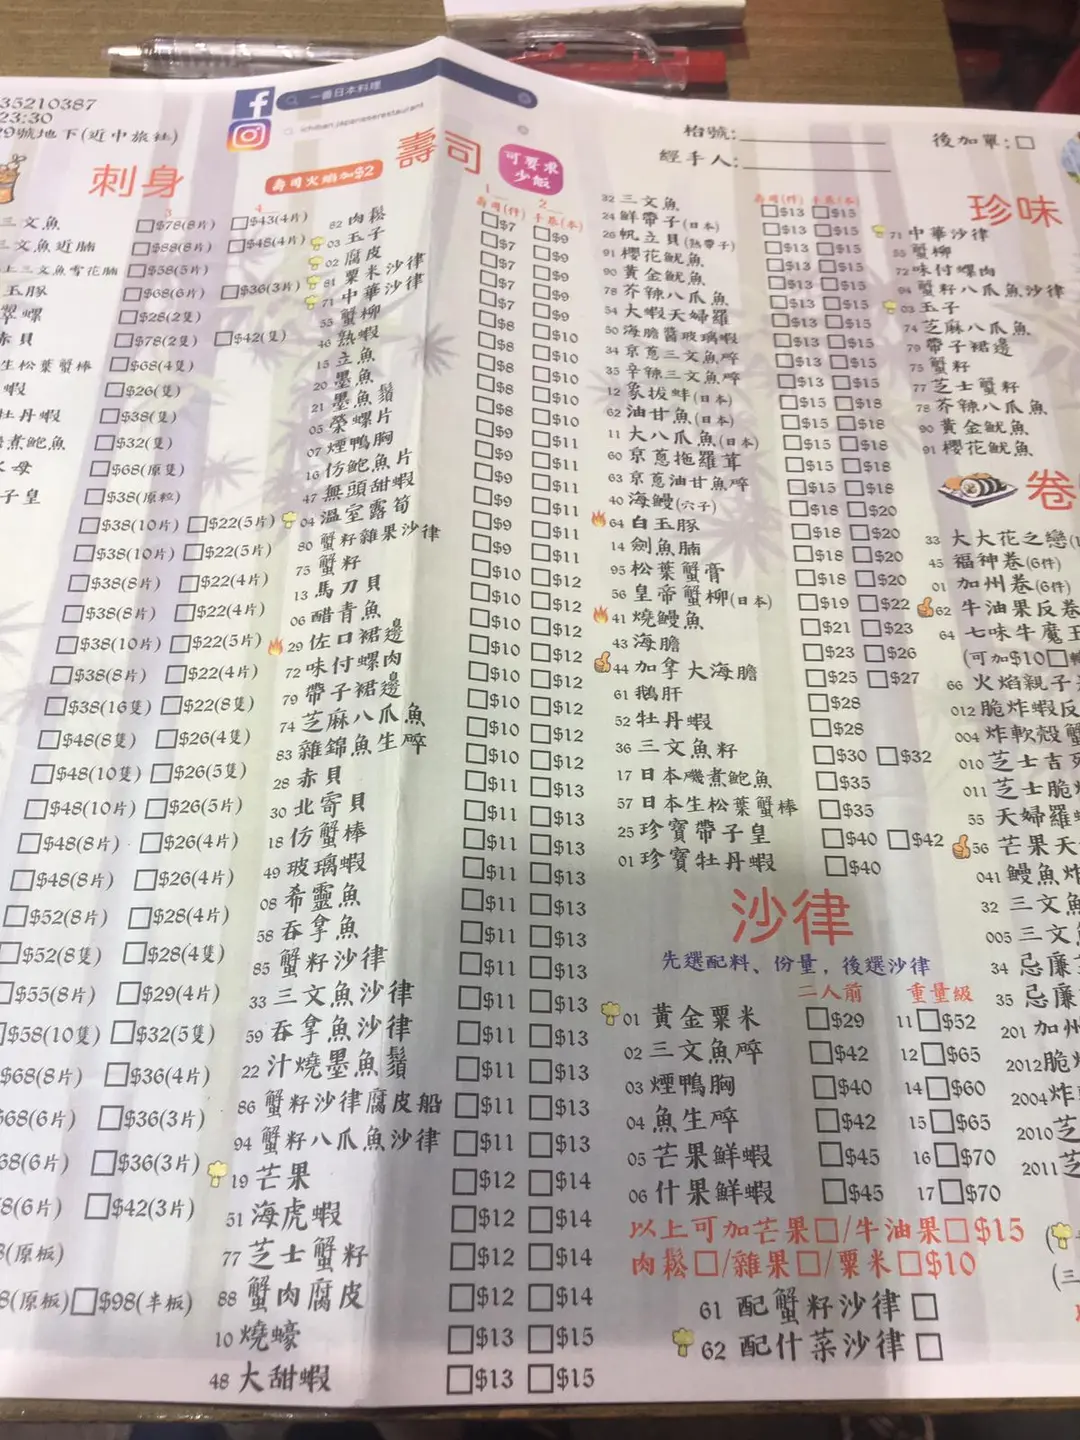 35210387
23:30
29號地下(近中旅社)
一番日本料理
ichiban.japaneserestaurant
枱號:
經手人:
後加單:□
刺身
三文魚 □$78(8片) □$43(4片)
三文魚近腩 □$88(8片) □$45(4片)
上三文魚雪花腩 □$58(5片)
玉豚 □$68(6片) □$36(3片)
翠螺 □$28(2隻)
赤貝 □$78(2隻) □$42(隻)
生松葉蟹棒 □$68(4隻)
蝦 □$26(隻)
牡丹蝦 □$38(隻)
煮鮑魚 □$32(隻)
母 □$68(原隻)
子皇 □$38(原粒)
□$38(10片) □$22(5片)
□$38(10片) □$22(5片)
□$38(8片) □$22(4片)
□$38(8片) □$22(4片)
□$38(10片) □$22(5片)
□$38(8片) □$22(4片)
□$38(16隻) □$22(8隻)
□$48(8隻) □$26(4隻)
□$48(10隻) □$26(5隻)
□$48(10片) □$26(5片)
□$48(8片) □$26(4片)
□$48(8片) □$26(4片)
□$52(8片) □$28(4片)
□$52(8隻) □$28(4隻)
□$55(8片) □$29(4片)
$58(10隻) □$32(5隻)
$68(8片) □$36(4片)
68(6片) □$36(3片)
68(6片) □$36(3片)
8(6片) □$42(3片)
8(原板)
8(原板) □$98(半板)
壽司
壽司火焰加$2
可要求少飯
壽司(件) 手卷(本)
82 肉鬆 □$7 □$9
03 玉子 □$7 □$9
02 腐皮 □$7 □$9
81 粟米沙律 □$7 □$9
71 中華沙律 □$7 □$9
55 蟹柳 □$8 □$10
46 熱蝦 □$8 □$10
15 立魚 □$8 □$10
20 墨魚 □$8 □$10
21 墨魚鬚 □$8 □$10
05 榮螺片 □$9 □$11
07 煙鴨胸 □$9 □$11
16 仿鮑魚片 □$9 □$11
47 無頭甜蝦 □$9 □$11
04 溫室露筍 □$9 □$11
80 蟹籽雜果沙律 □$9 □$11
75 蟹籽 □$10 □$12
13 馬刀貝 □$10 □$12
06 醋青魚 □$10 □$12
29 佐口裙邊 □$10 □$12
72 味付螺肉 □$10 □$12
79 帶子裙邊 □$10 □$12
74 芝麻八爪魚 □$10 □$12
83 雜錦魚生碎 □$10 □$12
28 赤貝 □$11 □$13
30 北寄貝 □$11 □$13
18 仿蟹棒 □$11 □$13
49 玻璃蝦 □$11 □$13
08 希靈魚 □$11 □$13
58 吞拿魚 □$11 □$13
85 蟹籽沙律 □$11 □$13
33 三文魚沙律 □$11 □$13
59 吞拿魚沙律 □$11 □$13
22 汁燒墨魚鬚 □$11 □$13
86 蟹籽沙律腐皮船 □$11 □$13
94 蟹籽八爪魚沙律 □$11 □$13
19 芒果 □$12 □$14
51 海虎蝦 □$12 □$14
77 芝士蟹籽 □$12 □$14
88 蟹肉腐皮 □$12 □$14
10 燒蠔 □$13 □$15
48 大甜蝦 □$13 □$15
壽司(件) 手卷(本)
32 三文魚 □$13 □$15
24 鮮帶子(日本) □$13 □$15
26 帆立貝(熟帶子) □$13 □$15
91 櫻花魷魚 □$13 □$15
90 黃金魷魚 □$13 □$15
78 芥辣八爪魚 □$13 □$15
54 大蝦天婦羅 □$13 □$15
50 海膽醬玻璃蝦 □$13 □$15
34 京蔥三文魚碎 □$13 □$15
35 辛辣三文魚碎 □$13 □$15
12 象拔蚌(日本) □$15 □$18
62 油甘魚(日本) □$15 □$18
11 大八爪魚(日本) □$15 □$18
60 京蔥拖羅茸 □$15 □$18
63 京蔥油甘魚碎 □$15 □$18
40 海鰻(穴子) □$18 □$20
64 白玉豚 □$18 □$20
14 劍魚腩 □$18 □$20
95 松葉蟹膏 □$18 □$20
56 皇帝蟹柳(日本) □$19 □$22
41 燒鰻魚 □$21 □$23
43 海膽 □$23 □$26
44 加拿大海膽 □$25 □$27
61 鵝肝 □$28
52 牡丹蝦 □$28
36 三文魚籽 □$30 □$32
17 日本磯煮鮑魚 □$35
57 日本生松葉蟹棒 □$35
25 珍寶帶子皇 □$40 □$42
01 珍寶牡丹蝦 □$40
沙律
先選配料、份量，後選沙律
二人前 重量級
01 黃金粟米 □$29 11□$52
02 三文魚碎 □$42 12□$65
03 煙鴨胸 □$40 14□$60
04 魚生碎 □$42 15□$65
05 芒果鮮蝦 □$45 16□$70
06 什果鮮蝦 □$45 17□$70
以上可加芒果□/牛油果□$15
肉鬆□/雜果□/粟米□$10
61 配蟹籽沙律 □
62 配什菜沙律 □
珍味
71 中華沙律
55 蟹柳
72 味付螺肉
94 蟹籽八爪魚沙律
03 玉子
74 芝麻八爪魚
79 帶子裙邊
75 蟹籽
77 芝士蟹籽
78 芥辣八爪魚
90 黃金魷魚
91 櫻花魷魚
卷
33 大大花之戀
45 福神卷(6件)
01 加州卷(6件)
62 牛油果反卷
64 七味牛魔王
(可加$10□
66 火焰親子
012 脆炸蝦反
004 炸軟殼蟹
010 芝士吉列
011 芝士脆炸
55 天婦羅
56 芒果天
041 鰻魚炸
32 三文魚
005 三文
34 忌廉
35 忌廉
201 加州
2012 脆炸
2004 炸
2010 芝
2011 芝